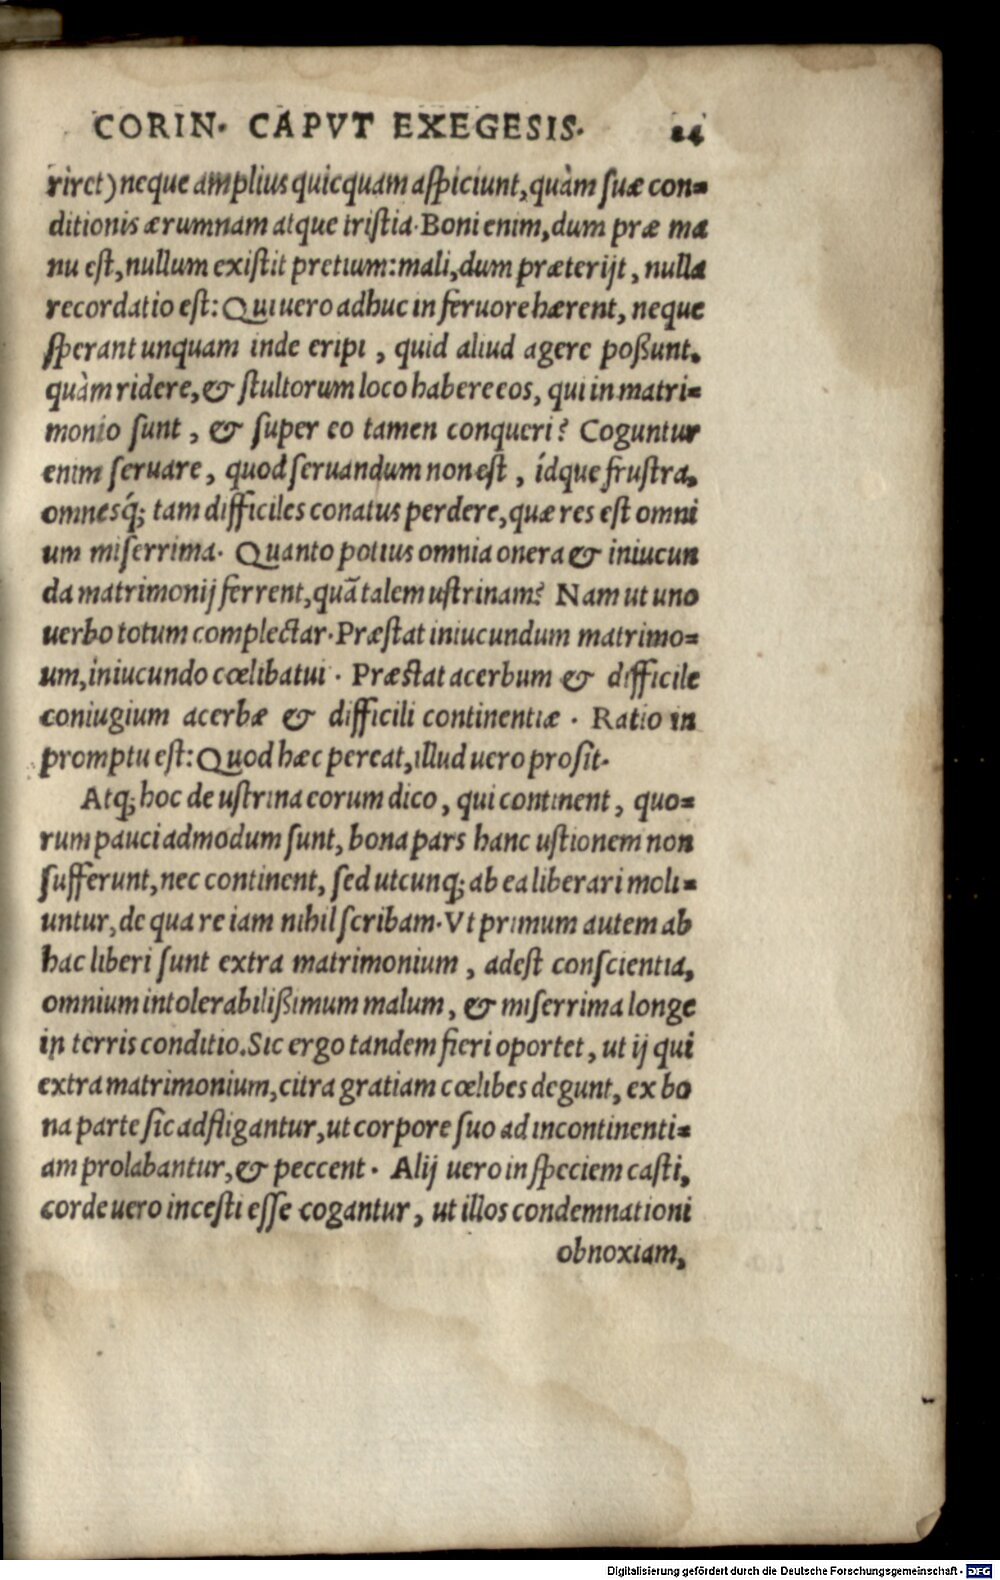 CORIN. CAPVT EXEGESIS. 24
riret) neque amplius quicquam aspiciunt, quàm suæ con-
ditionis ærumnam atque tristia. Boni enim, dum præ ma
nu est, nullum existit pretium: mali, dum præterijt, nulla
recordatio est: Qui uero adhuc in feruore hærent, neque
sperant unquam inde eripi, quid aliud agere poßunt.
quàm ridere, & stultorum loco habere eos, qui in matri-
monio sunt, & super eo tamen conqueri? Coguntur
enim seruare, quod seruandum non est, idque frustra,
omnesq́; tam difficiles conatus perdere, quæ res est omni
um miserrima. Quanto potius omnia onera & iniucun
da matrimonij ferrent, quā talem ustrinam? Nam ut uno
uerbo totum complectar. Præstat iniucundum matrimo-
um, iniucundo cœlibatui. Præstat acerbum & difficile
coniugium acerbæ & difficili continentiæ. Ratio in
promptu est: Quod hæc pereat, illud uero prosit.
Atq; hoc de ustrina eorum dico, qui continent, quo-
rum pauci admodum sunt, bona pars hanc ustionem non
sufferunt, nec continent, sed utcunq; ab ea liberari moli-
untur, de qua re iam nihil scribam. Vt primum autem ab
hac liberi sunt extra matrimonium, adest conscientia,
omnium intolerabilißimum malum, & miserrima longe
in terris conditio. Sic ergo tandem fieri oportet, ut ij qui
extra matrimonium, citra gratiam cœlibes degunt, ex bo
na parte sic adfligantur, ut corpore suo ad incontinenti-
am prolabantur, & peccent. Alij uero in speciem casti,
corde uero incesti esse cogantur, ut illos condemnationi
obnoxiam,
Digitalisierung gefördert durch die Deutsche Forschungsgemeinschaft - DFG